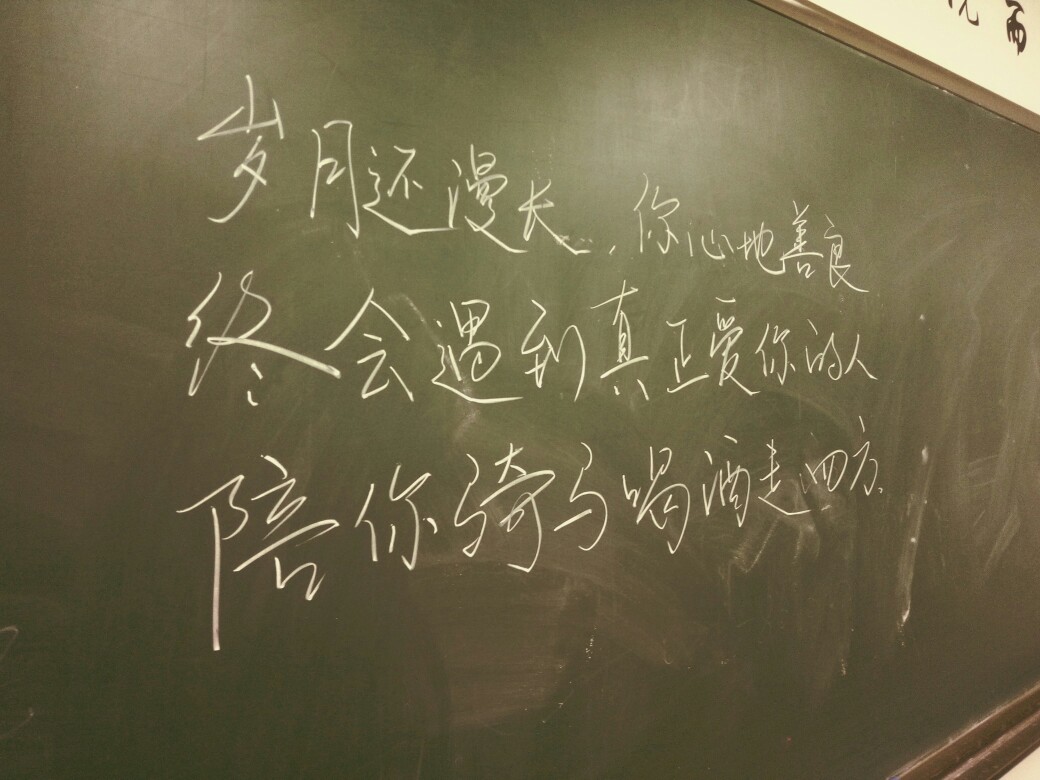 岁月还漫长,你心地善良
终会遇到真正爱你的人
陪你骑马喝酒走四方.